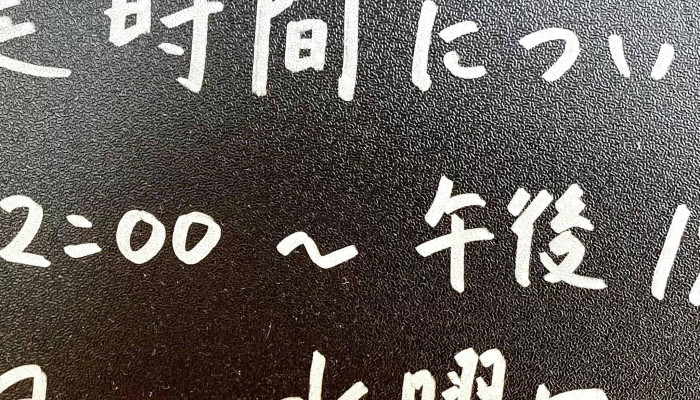 時間につい
2:00 ～ 午後 1
水曜